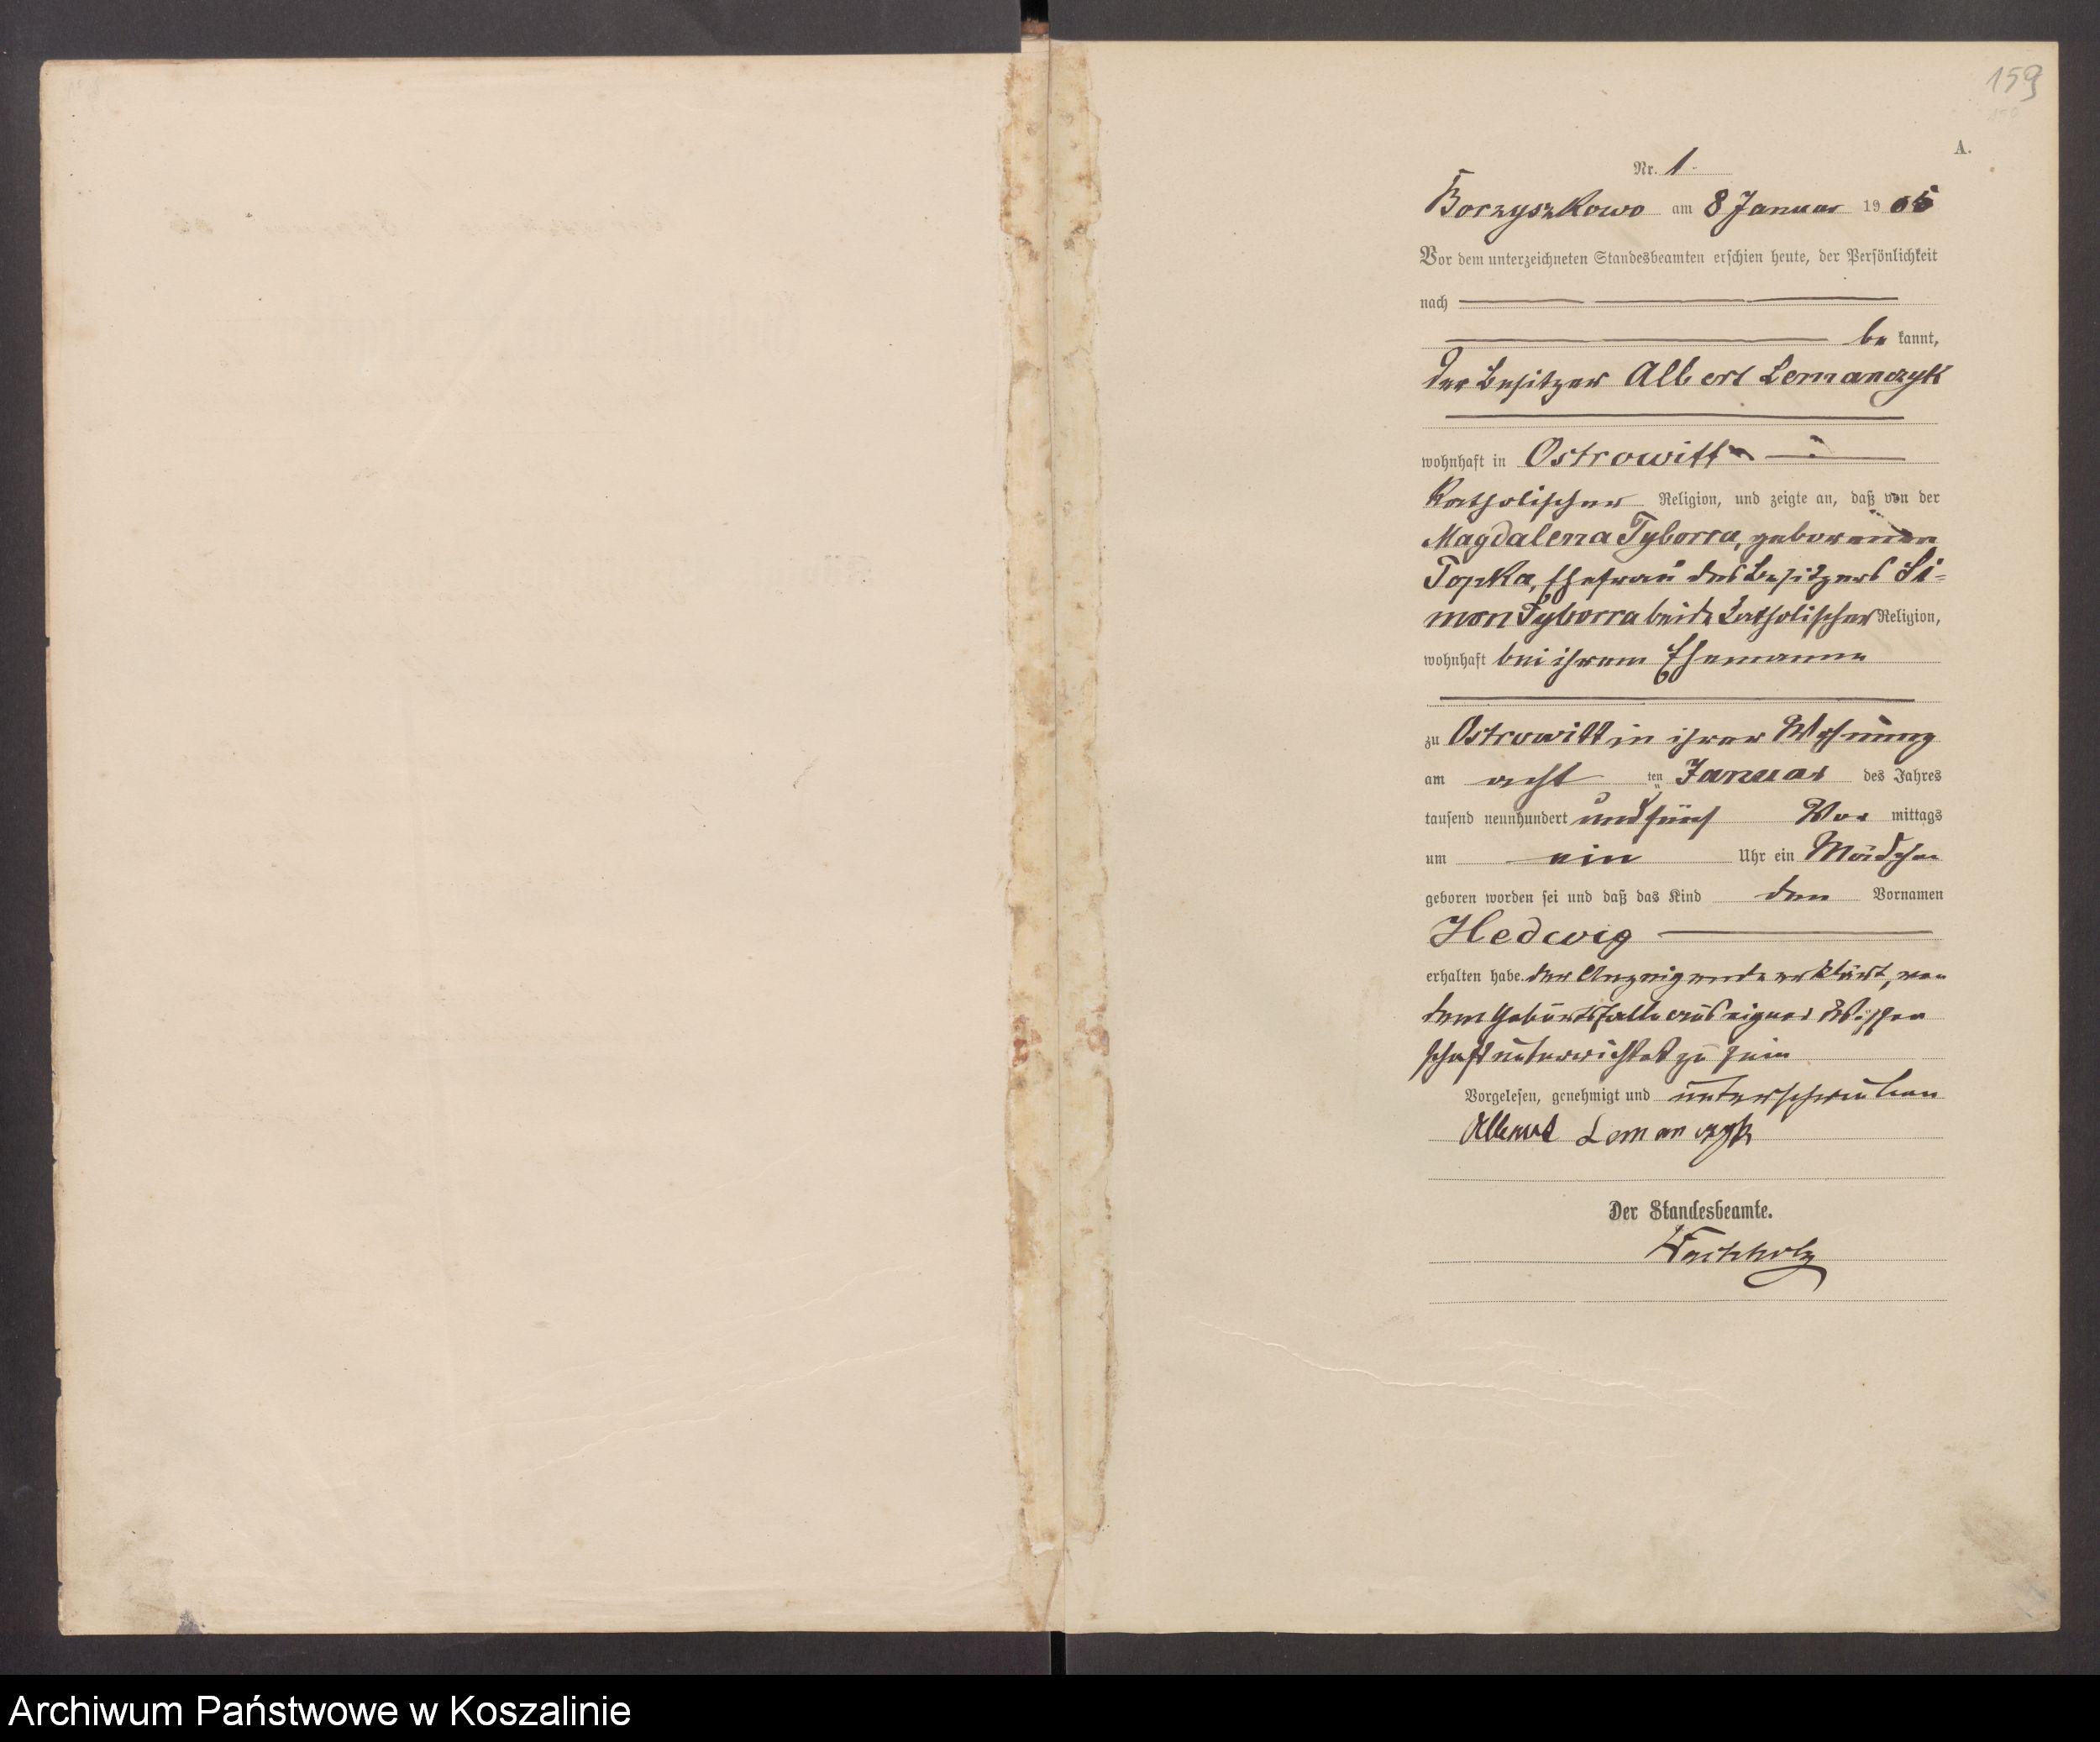 159
A.
Nr. 1.
Borzyszkowo am 8 Januar 1905
Vor dem unterzeichneten Standesbeamten erschien heute, der Persönlichkeit
nach
be kannt,
der Besitzer Albert Lemanczyk
wohnhaft in Ostrowitt
katholischer Religion, und zeigte an, daß von der
Magdalena Tyborra, geborenen
Topka, Ehefrau des Besitzers Si-
mon Tyborra beide katholischer Religion,
wohnhaft bei ihrem Ehemanne
zu Ostrowitt in ihrer Wohnung
am acht ten Januar des Jahres
tausend neunhundert und fünf Vor mittags
um ein Uhr ein Mädchen
geboren worden sei und daß das Kind den Vornamen
Hedwig
erhalten habe. Der Anzeigende erklärt, von
dem Geburtsfalle aus eigner Wissen
schaft unterrichtet zu sein
Vorgelesen, genehmigt und unterschrieben
Albert Lemanczyk
Der Standesbeamte.
Archiwum Państwowe w Koszalinie